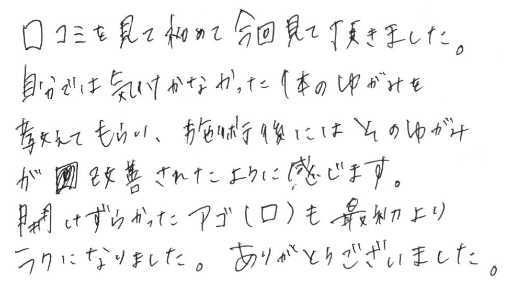 口コミを見て初めて今回見て頂きました。
自分では気付かなかった体のゆがみを
教えてもらい、お施術後にはそのゆがみ
が改善されたように感じます。
開けずらかったアゴ(口)も最初より
ラクになりました。ありがとうございました。